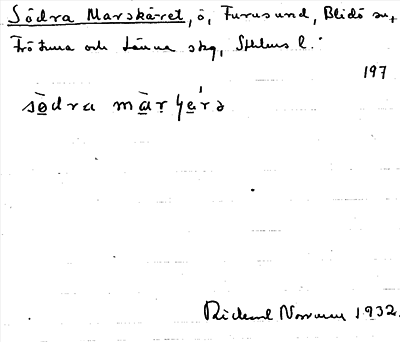 Södra Marskäret, ö, Furusund, Blidö sn,
Frötuna och Länna skg, Sthlms l.
197
sö̀dra mà̱r ɧä́rə
Rickard Norman 1932.